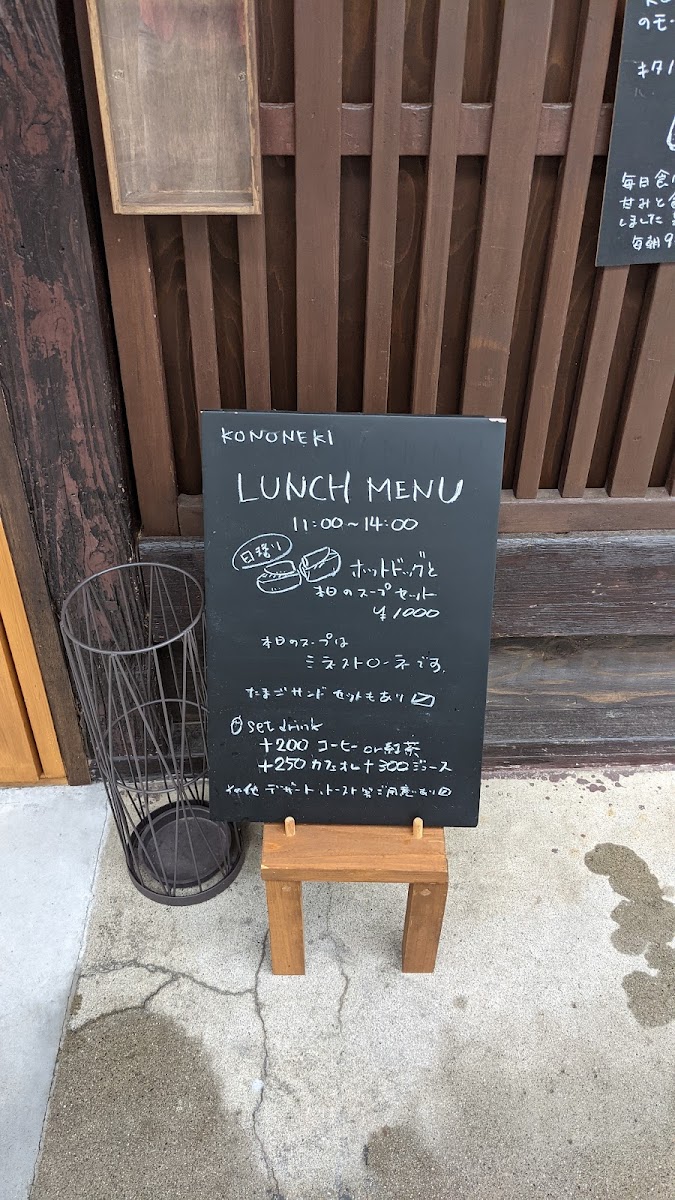 KONONEKI
LUNCH MENU
11:00〜14:00
日替り
ホットドッグと
本日のスープセット
¥1000
本日のスープは
ミネストローネです。
たまごサンド セットもあり〼
set drink
+200 コーヒー or 紅茶
+250 カフェオレ +300 ジュース
その他 デザート、トースト等ご用意あり〼
のモー
キタノ
毎日食
甘みと食
しました
毎朝9